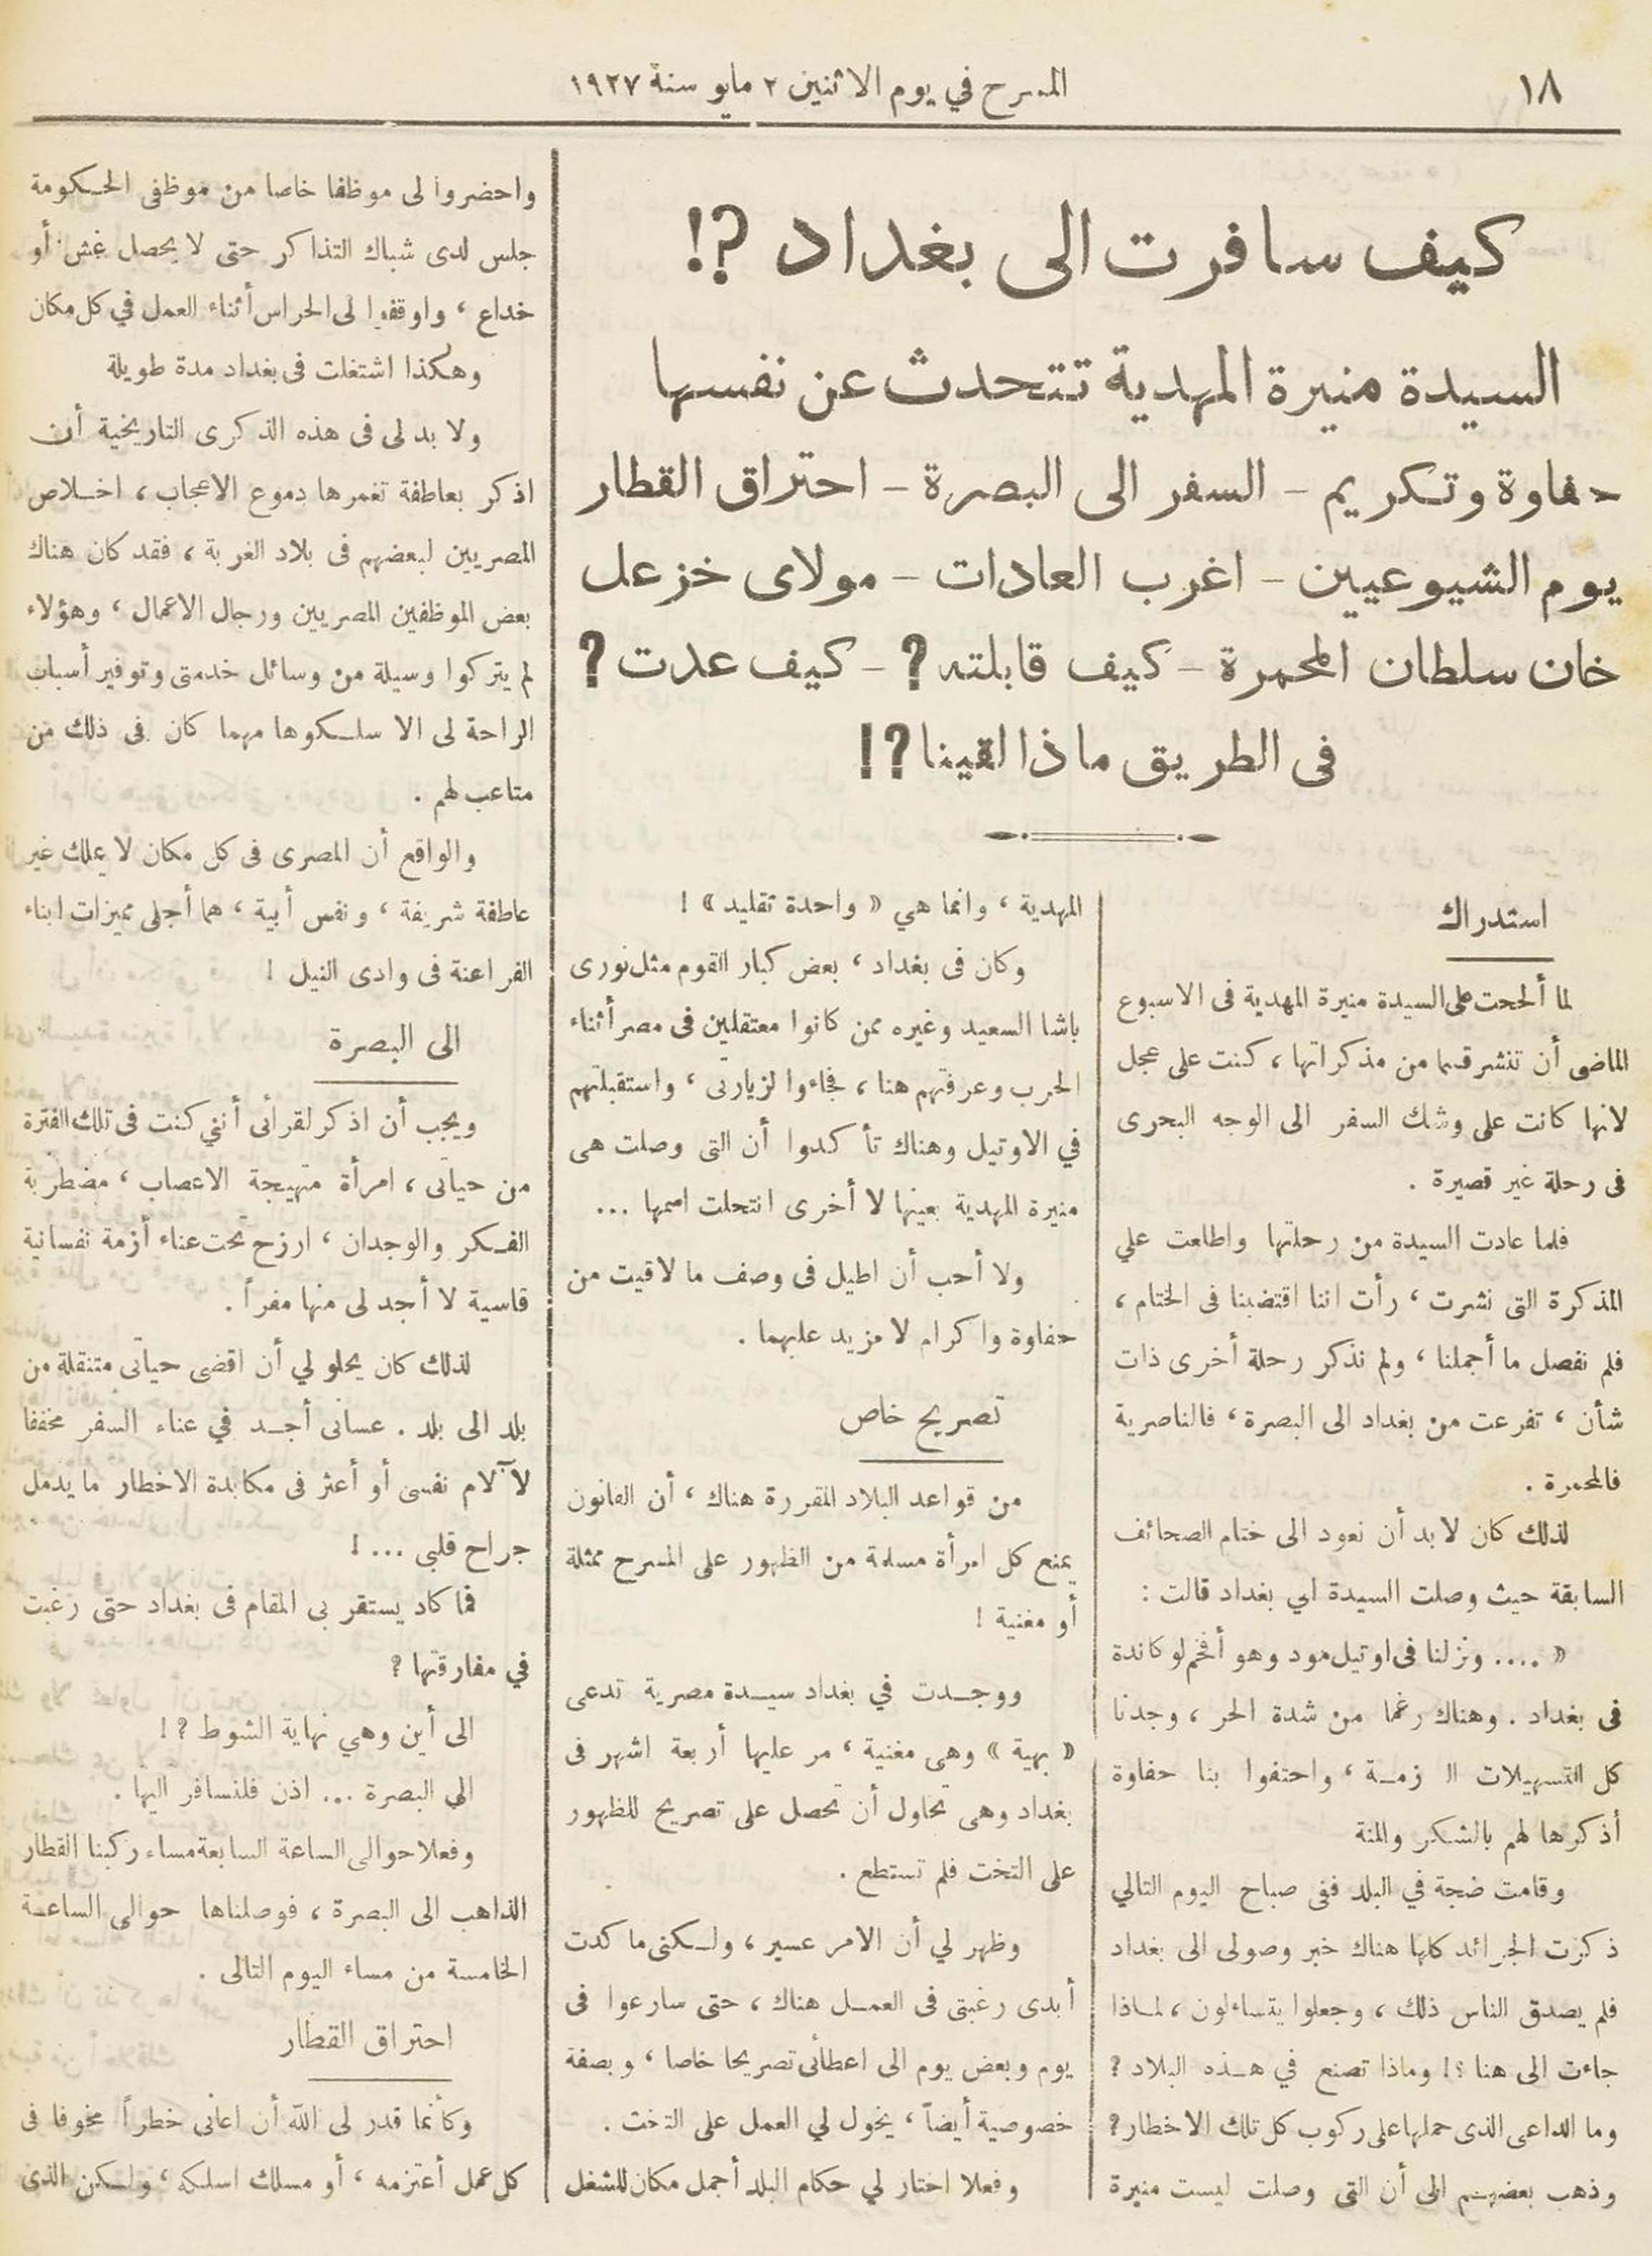 ١٨
المسرح في يوم الاثنين ٢ مايو سنة ١٩٢٧
كيف سافرت الى بغداد ?!
السيدة منيرة المهدية تتحدث عن نفسها
حفاوة وتكريم – السفر الى البصرة – احتراق القطار
يوم الشيوعيين – اغرب العادات – مولاى خزعل
خان سلطان المحمرة – كيف قابلته ? – كيف عدت ?
فى الطريق ماذا لقينا ?!
استدراك
لما ألححت على السيدة منيرة المهدية فى الاسبوع
الماضى أن تنشر قسما من مذكراتها ، كنت على عجل
لانها كانت على وشك السفر الى الوجه البحرى
فى رحلة غير قصيرة .
فلما عادت السيدة من رحلتها واطلعت علي
المذكرة التى نشرت ، رأت اننا اقتضبنا فى الختام ،
فلم نفصل ما أجملنا ، ولم نذكر رحلة أخرى ذات
شأن ، تفرعت من بغداد الى البصرة ، فالناصرية
فالمحمرة .
لذلك كان لابد أن نعود الى ختام الصحائف
السابقة حيث وصلت السيدة الي بغداد قالت :
« .... ونزلنا فى اوتيل مود وهو أفخم لوكاندة
فى بغداد . وهناك رغما من شدة الحر ، وجدنا
كل التسهيلات ال زمة ، واحتفوا بنا حفاوة
أذكرها لهم بالشكر والمنة
وقامت ضجة في البلد ففى صباح اليوم التالي
ذكرت الجرائد كلها هناك خبر وصولى الى بغداد
فلم يصدق الناس ذلك ، وجعلوا يتساءلون ، لماذا
جاءت الى هنا ؟! وماذا تصنع في هذه البلاد ?
وما الداعى الذى حملها على ركوب كل تلك الاخطار ?
وذهب بعضهم الى أن التى وصلت ليست منيرة
المهدية ، وانما هي « واحدة تقليد » !
وكان فى بغداد ، بعض كبار القوم مثل نورى
باشا السعيد وغيره ممن كانوا معتقلين فى مصر أثناء
الحرب وعرفتهم هنا ، فجاءوا لزيارتى ، واستقبلتهم
في الاوتيل وهناك تأكدوا أن التى وصلت هى
منيرة المهدية بعينها لا أخرى انتحلت اسمها ...
ولا أحب أن اطيل فى وصف ما لاقيت من
حفاوة واكرام لا مزيد عليهما .
تصريح خاص
من قواعد البلاد المقررة هناك ، أن القانون
يمنع كل امرأة مسلمة من الظهور على المسرح ممثلة
أو مغنية !
ووجدت في بغداد سيدة مصرية تدعى
« بهية » وهى مغنية ، مر عليها أربعة اشهر فى
بغداد وهى تحاول أن تحصل على تصريح للظهور
على التخت فلم تستطع .
وظهر لي أن الامر عسير ، ولكنى ما كدت
أبدى رغبتى فى العمل هناك ، حتى سارعوا فى
يوم وبعض يوم الى اعطأنى تصريحا خاصا ، وبصفة
خصوصية أيضاً ، يخول لي العمل على التخت .
وفعلا اختار لي حكام البلد أجمل مكان للشغل
واحضروا لى موظفا خاصا من موظفى الحكومة
جلس لدى شباك التذاكر حتى لا يحصل غش أو
خداع ، واوقفوا لى الحراس أثناء العمل في كل مكان
وهكذا اشتغلت فى بغداد مدة طويلة
ولا بد لى فى هذه الذكرى التاريخية أن
اذكر بعاطفة تغمرها دموع الاعجاب ، اخلاص
المصريين لبعضهم فى بلاد الغربة ، فقد كان هناك
بعض الموظفين المصريين ورجال الاعمال ، وهؤلاء
لم يتركوا وسيلة من وسائل خدمتى وتوفير أسباب
الراحة لى الا سلكوها مهما كان فى ذلك من
متاعب لهم .
والواقع أن المصرى فى كل مكان لا يملك غير
عاطفة شريفة ، ونفس أبية ، هما أجلى مميزات ابناء
الفراعنة فى وادى النيل !
الى البصرة
ويجب أن اذكر لقرأى أنني كنت فى تلك الفترة
من حياتى ، امرأة متهيجة الاعصاب ، مضطربة
الفكر والوجدان ، ارزح تحت عناء أزمة نفسانية
قاسية لا أجد لى منها مفراً .
لذلك كان يحلو لي أن اقضى حياتى متنقلة من
بلد الى بلد . عسانى أجد في عناء السفر مخففا
لآلام نفسى أو أعثر فى مكابدة الاخطار ما يدمل
جراح قلبي ... !
فما كاد يستقر بى المقام فى بغداد حتى رغبت
في مفارقتها ?
الى أين وهي نهاية الشوط ?!
الي البصرة ... اذن فلنسافر اليها .
وفعلا حوالى الساعة السابعة مساء ركبنا القطار
الذاهب الى البصرة ، فوصلناها حوالي الساعة
الخامسة من مساء اليوم التالى .
احتراق القطار
وكأنما قدر لى الله أن اعانى خطراً مخوفا فى
كل عمل أعتزمه ، أو مسلك اسلكه ، ولكن الذى